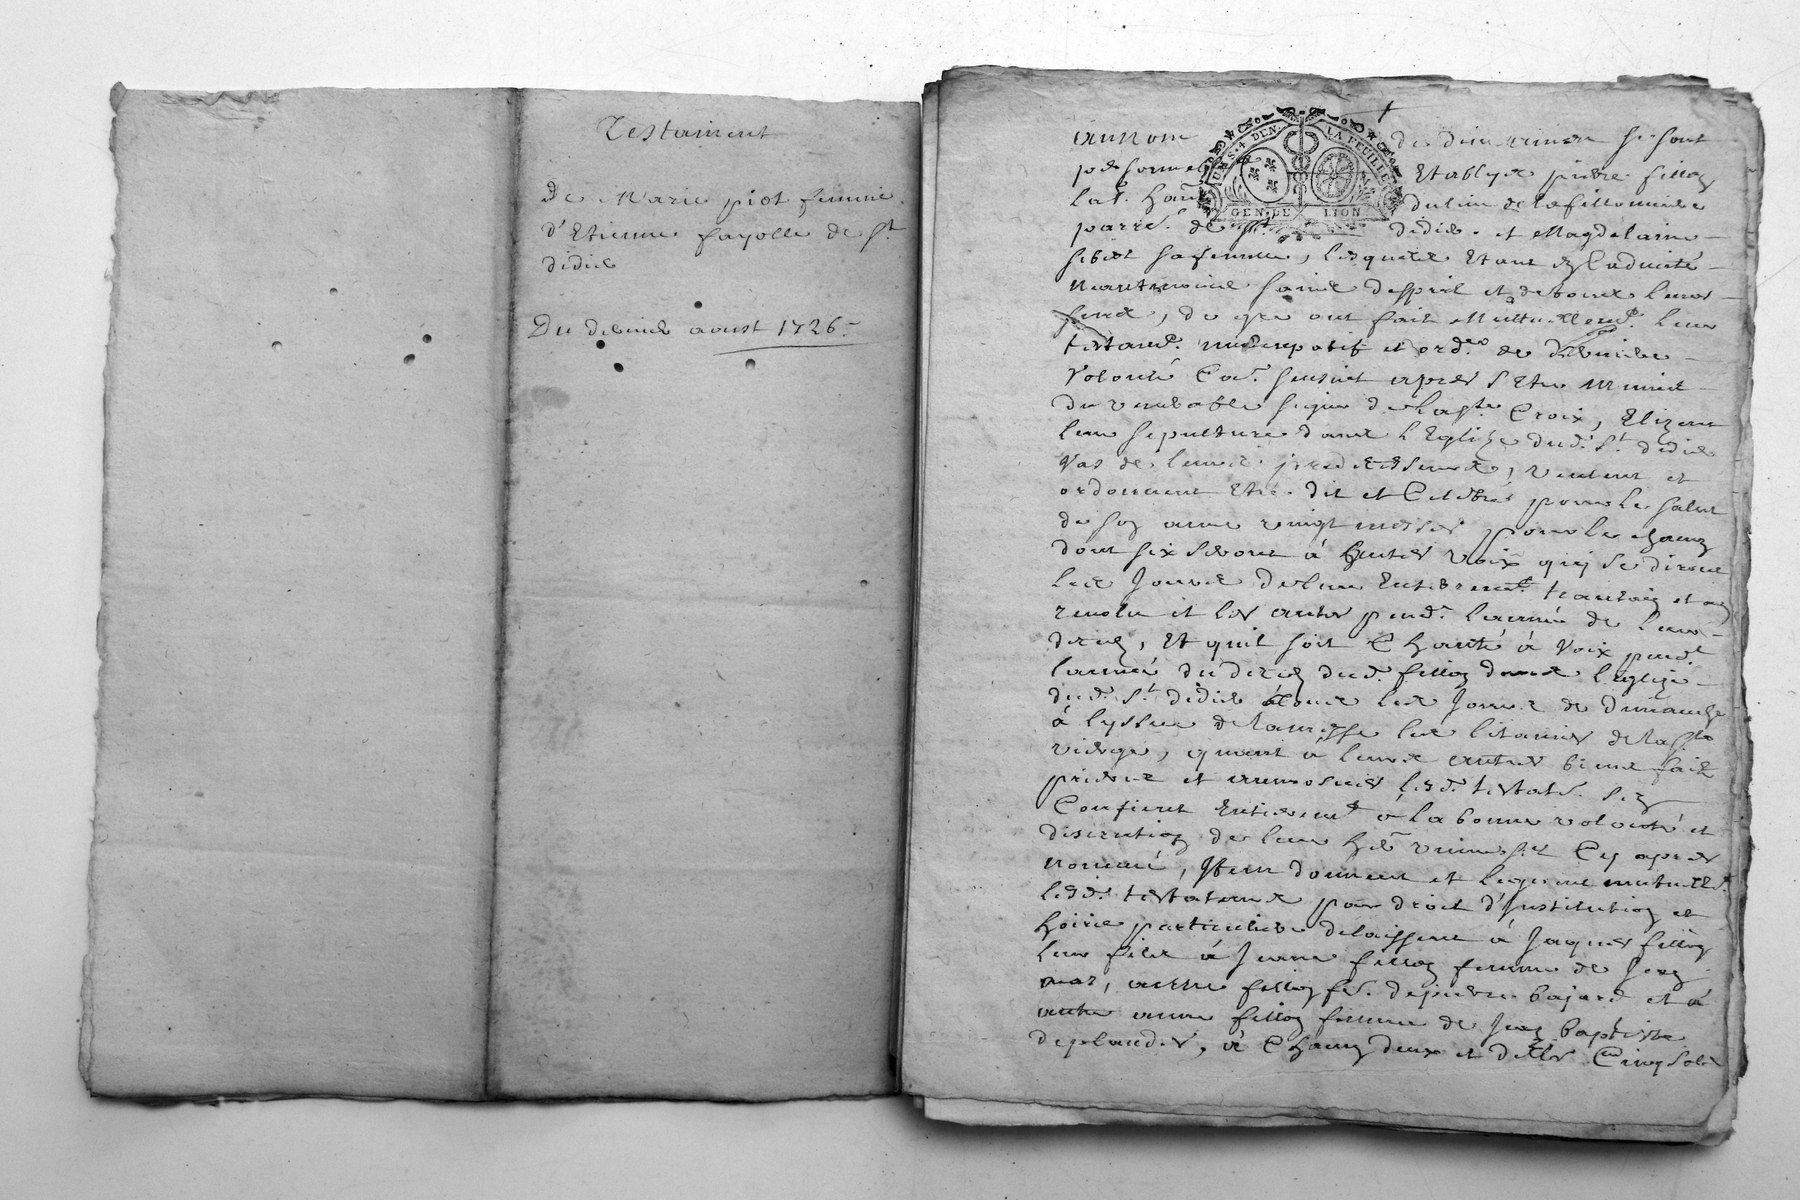 Testament
De Marie piot femme
d'Etienne fayolle de St
didie
Du dernier aoust 1726
au nom de dieu se sont
UN S. 4 DEN. LA FEUILLE
GEN. DE LION
Etablys pierre fillon
lab.
du lieu de
parre. de St didie. et Magdelaine
sa femme, lesquels Etant
saine desprit et de tous leurs
sens, de gre ont fait Mutuellemt. leur
testamt. nuncupatif et ordce de derniere
volonté Come sensuit apres s'Etre munis
du venerable signe de la ste Croix, Elizent
leur sepulture dans l'Eglize dud. St didie
vas de leurs predecesseurs, veulent et
ordonnent Etre dit et Celebré pour le salut
de son ame vingt messes pour le chacun
dont six seront à hautes voix qui se diront
les jours de leur Enterremt. trantein et an
revolu et les autres pendt. l'année de leur
deces, Et quil soit Chanté à voix pendt.
l'année du deces dud. fillon dans l'eglize
dud. St didie tous les jours de dimanche
à l'yssue de la messe les litanies de la ste
vierge, quant à leurs autres biens faits
prieres et aumosnes lesd. testats. sen
Confient Entieremt à la bonne volonté et
discretion de leur her. universel Cy apres
nommé, Item donnent et leguent mutuellt.
lesd. testateurs par droit d'Institution et
hoirie particuliere delaissent à Jaques fillon
leur fils à Jeanne fillon femme de Jean
autre fillon fe. de pierre bajard et à
autre anne fillon femme de Jean baptiste
deplaude, à Chacun deux et d'elles Cinq sols